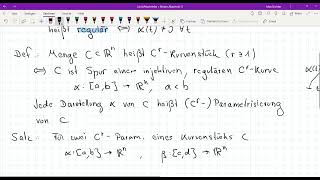 heißt regulär ⇔ α̇(t) ≠ 0 ∀t
Def: Menge C ⊂ ℝⁿ heißt Cʳ-Kurvenstück (r ≥ 1)
⇔ C ist Spur einer injektiven, regulären Cʳ-Kurve
α: [a,b] → ℝⁿ, a < b
Jede Darstellung α von C heißt (Cʳ-) Parametrisierung
von C
Satz: Für zwei Cʳ-Param. eines Kurvenstücks C
α: [a,b] → ℝⁿ, β: [c,d] → ℝⁿ